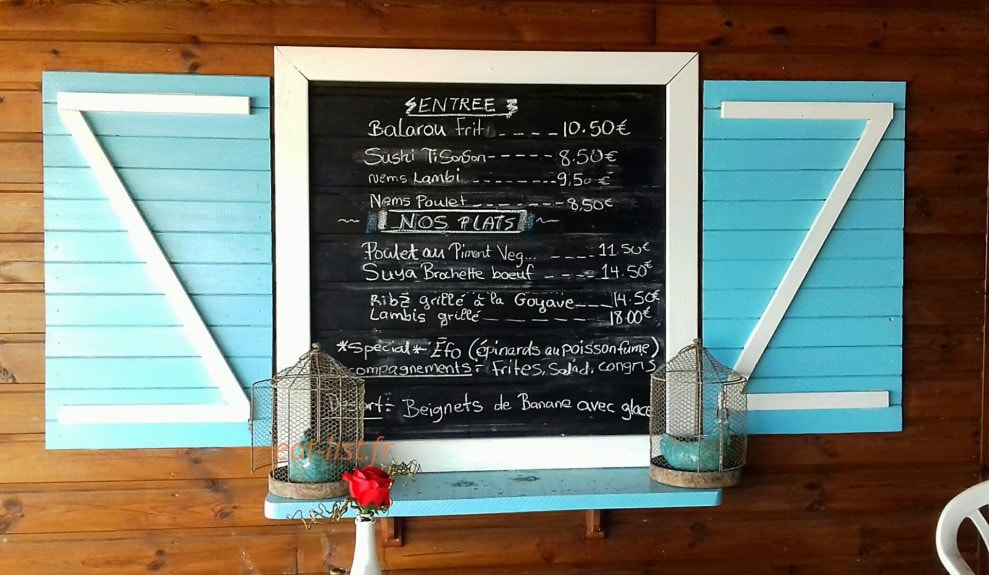 ENTREE
Balarou Frit _ _ _ _ _ 10.50€
Sushi TiSonSon ------ 8.50€
Nems Lambi - - - - - - - - 9,50 €
Nems Poulet - - - - - - - - 8,50€
NOS PLATS
Poulet au Piment Veg... --- 11.50€
Suya Brochette boeuf ---- 14.50€
Ribs grillé à la Goyave--- 14.50€
Lambis grillé- - - - - - - - - 18.00€
*Spécial* Efo (épinards au poisson fumé)
compagnements= Frites, Salad, congris
Beignets de Banane avec glace
eat-list.fr